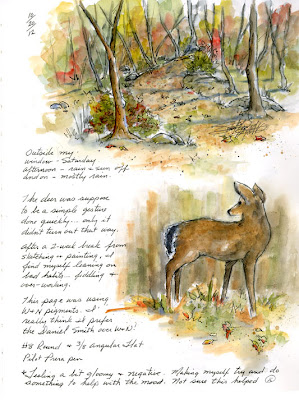 10
20
12
Outside my
window - Saturday
afternoon - rain & sun off
and on - mostly rain.
The deer was suppose
to be a simple gesture
done quickly... only it
didn't turn out that way.
After a 2-week break from
sketching & painting, I
find myself leaning on
bad habits - fiddling &
over-working.
This page was using
W&N pigments. I
really think I prefer
the Daniel Smith over W&N!
#8 Round & 3/8 angular Flat
Pilot Prera pen
*Feeling a bit gloomy & negative. Making myself try and do
something to help with the mood. Not sure this helped